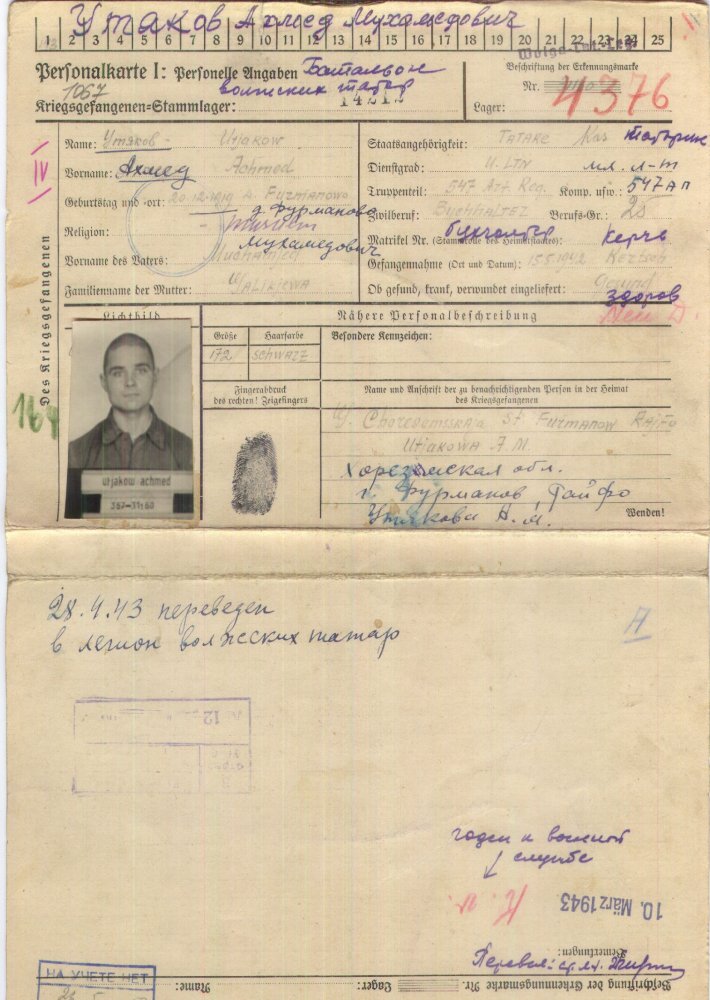 Утяков Ахмед Мухамедович
1 2 3 4 5 6 7 8 9 10 11 12 13 14 15 16 17 18 19 20 21 22 23 24 25
Wolga-tat.Leg.
Personalkarte I: Personelle Angaben
Батальон
волжских татар
Beschriftung der Erkennungsmarke
1067
14212
Nr.
4376
Kriegsgefangenen=Stammlager:
Lager:
IV
Des Kriegsgefangenen
Name: Утяков - Utjakow
Vorname: Ахмед Achmed
Geburtstag und -ort: 20.12.1919 Furmanowo
д. Фурманово
Religion:
Мухамедович
Vorname des Vaters: Muchamed
Familienname der Mutter: Walikjewa
Staatsangehörigkeit: Tatare татарин
Dienstgrad: U. Ltn мл. л-т
Truppenteil: 547 Art. Reg. Komp. usw.: 547 ап
Zivilberuf: Buchhalter Berufs-Gr.: 25
бухгалтер
Matrikel Nr. (Stammrolle des Heimatstaates): Керчь
Gefangennahme (Ort und Datum): 15.5.1942 Kertsch
Ob gesund, krank, verwundet eingeliefert: Gesund
здоров
Lichtbild
Nähere Personalbeschreibung
Größe Haarfarbe Besondere Kennzeichen:
172 schwarz
Fingerabdruck
des rechten! Zeigefingers
Name und Anschrift der zu benachrichtigenden Person in der Heimat
des Kriegsgefangenen
164
St. Furmanow Rajfo
Utjakowa A.M.
Хорезмская обл.
г. Фурманов, Райфо
Утякова А.М.
utjakow achmed
367-31160
Wenden!
28.4.43 переведен
в легион волжских татар
A
12
годен к военной
службе
K.v.
10. März 1943
Bemerkungen:
Перевел: ст. лт.
НА УЧЕТЕ НЕТ
Name:
Lager:
Beschriftung der Erkennungsmarke Nr.